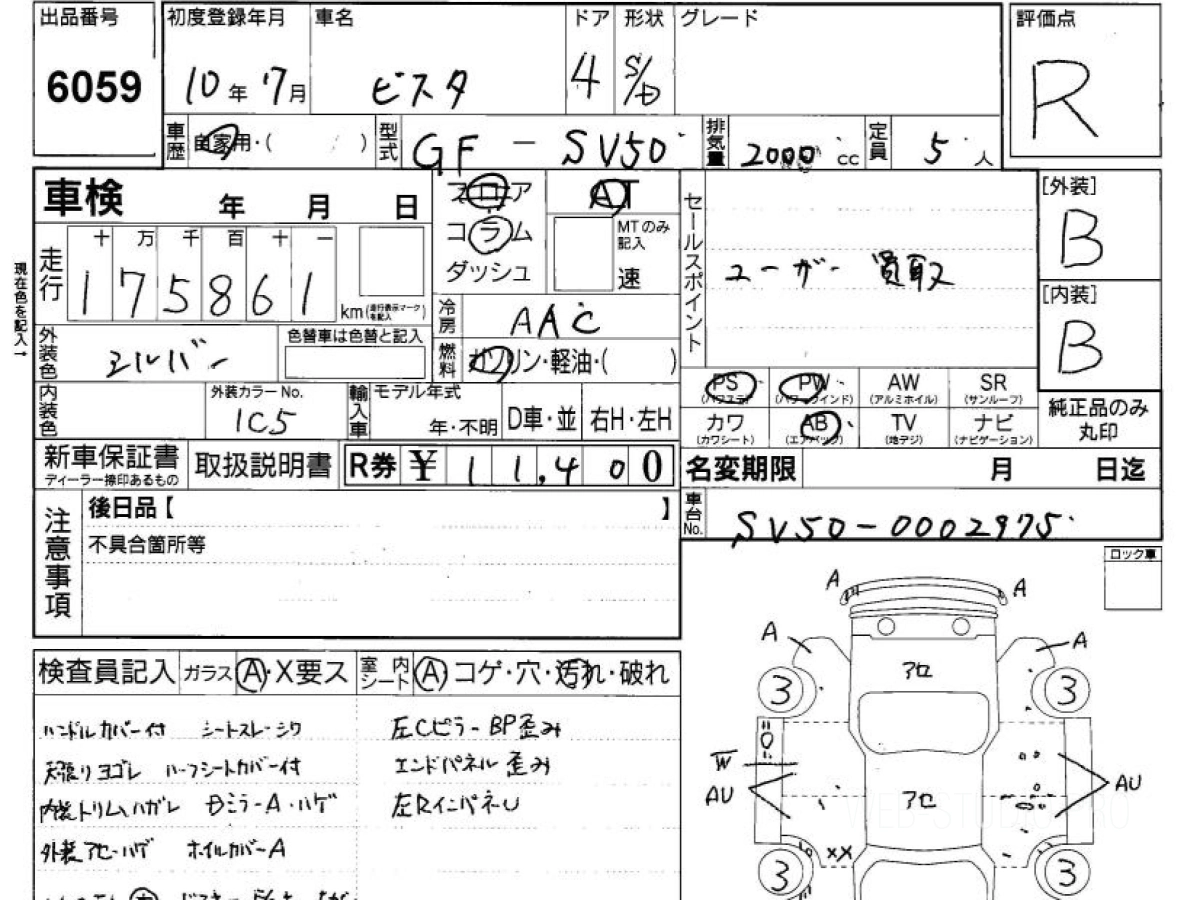 出品番号 初度登録年月 車名 ドア 形状 グレード 評価点
6059 10年7月 ビスタ 4 S/D R
車歴 自家用・( ) 型式 GF - SV50 排気量 2000 cc 定員 5人
車検 年 月 日
フロア AT
コラム MTのみ記入
ダッシュ 速
セールスポイント ユーザー 買取
[外装] B
[内装] B
現在色を記入→
走行 十 万 千 百 十 一
175861 km (走行表示マークを記入)
冷房 AAC
外装色 シルバー 色替車は色替と記入
燃料 ガソリン・軽油・( )
内装色 外装カラーNo. 1C5
輸入車 モデル年式 年・不明 D車・並 右H・左H
PS (パワステ) PW (パワーウインド) AW (アルミホイル) SR (サンルーフ)
カワ (カワシート) AB (エアバック) TV (地デジ) ナビ (ナビゲーション)
純正品のみ丸印
新車保証書 ディーラー捺印あるもの 取扱説明書 R券 ¥11,400
名変期限 月 日迄
車台No. SV50-0002975
注意事項 後日品【 】
不具合箇所等
ロック車
検査員記入 ガラス A・X要ス 室内シート A コゲ・穴・汚れ・破れ
ハンドルカバー付 シートスレ-シワ 左Cピラー BP歪み
天張りヨゴレ ハーフシートカバー付 エンドパネル 歪み
内装トリムハガレ Dミラー A・ハゲ 左RインパネU
外装アセ・ハゲ ホイルカバーA
A A
A A
アセ
3 3
W
AU アセ AU
XX
3 3
WEB-STUDIO.RO